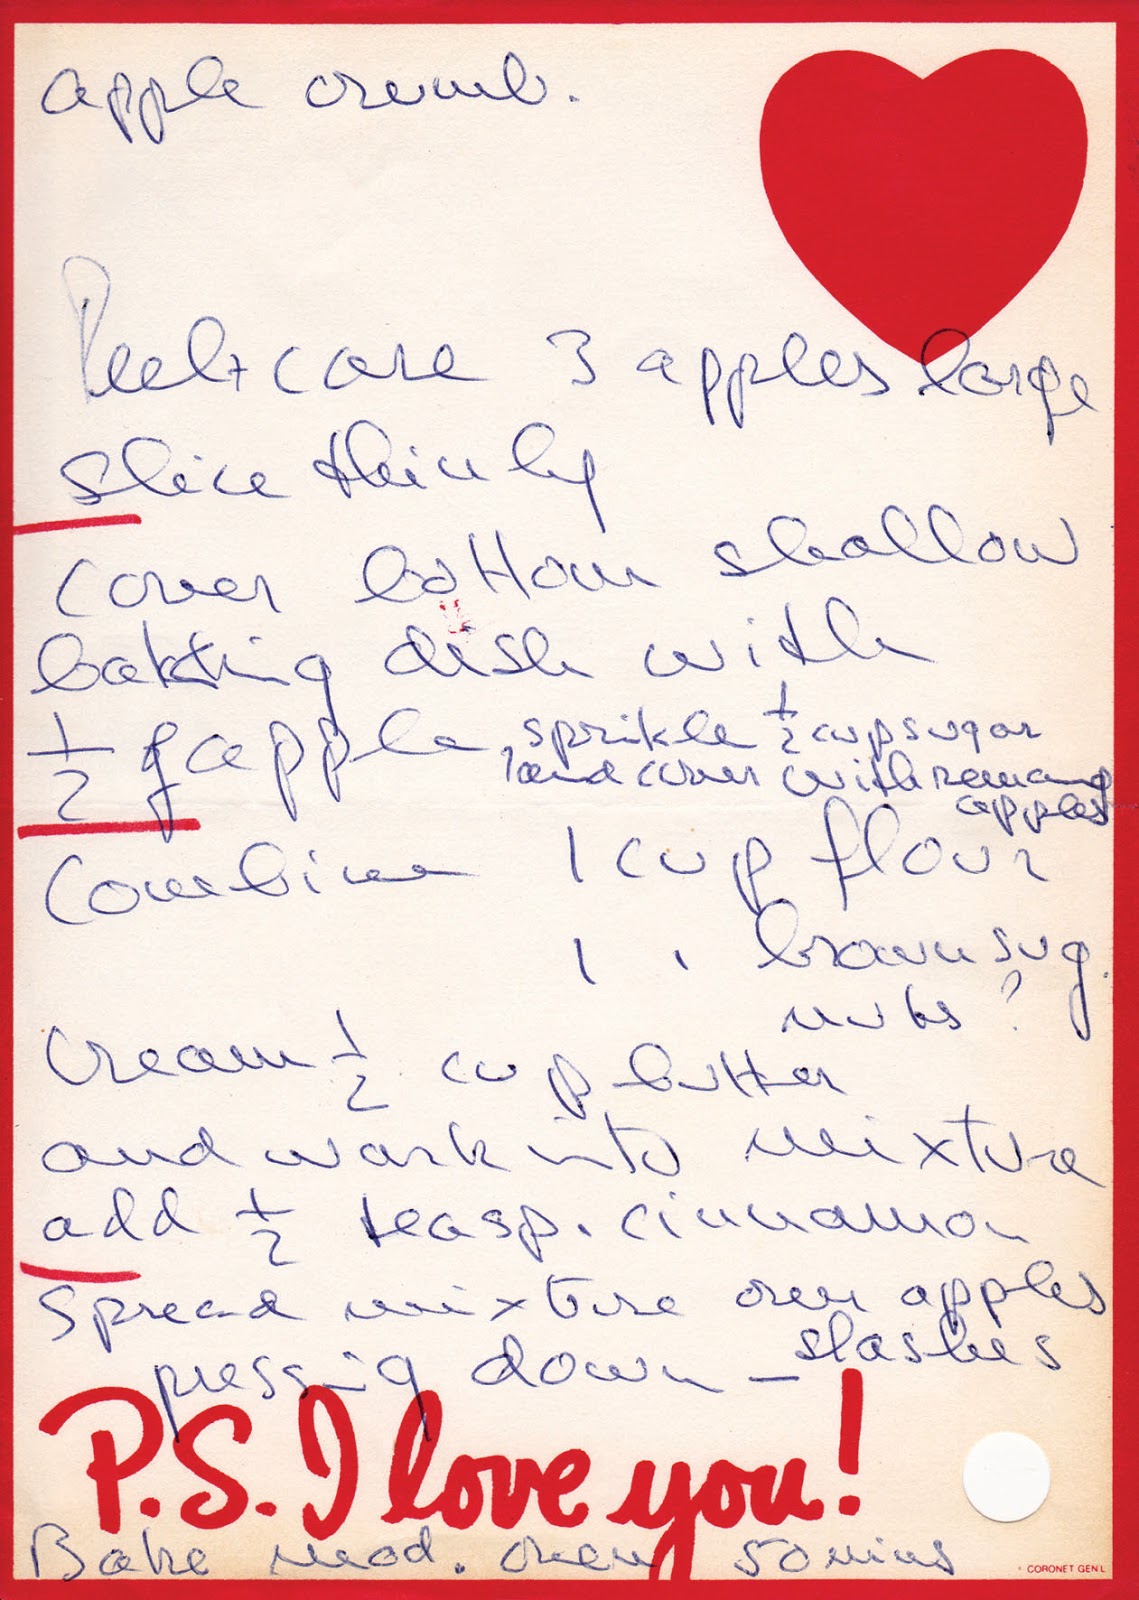 apple crumb.
Peel + core 3 apples large
slice thinly
cover bottom shallow
bakting dish with
1/2 of apple, sprikle 1/2 cup sugar
and cover with remang
apples
Combine 1 cup flour
1 " brown sug.
nuts ?
Cream 1/2 cup butter
and work into mixture
add 1/2 teasp. cinnamon
Spread mixture over apples
pressing down - slashes
P.S. I love you!
Bake mod. oven 50 mins
CORONET GEN'L